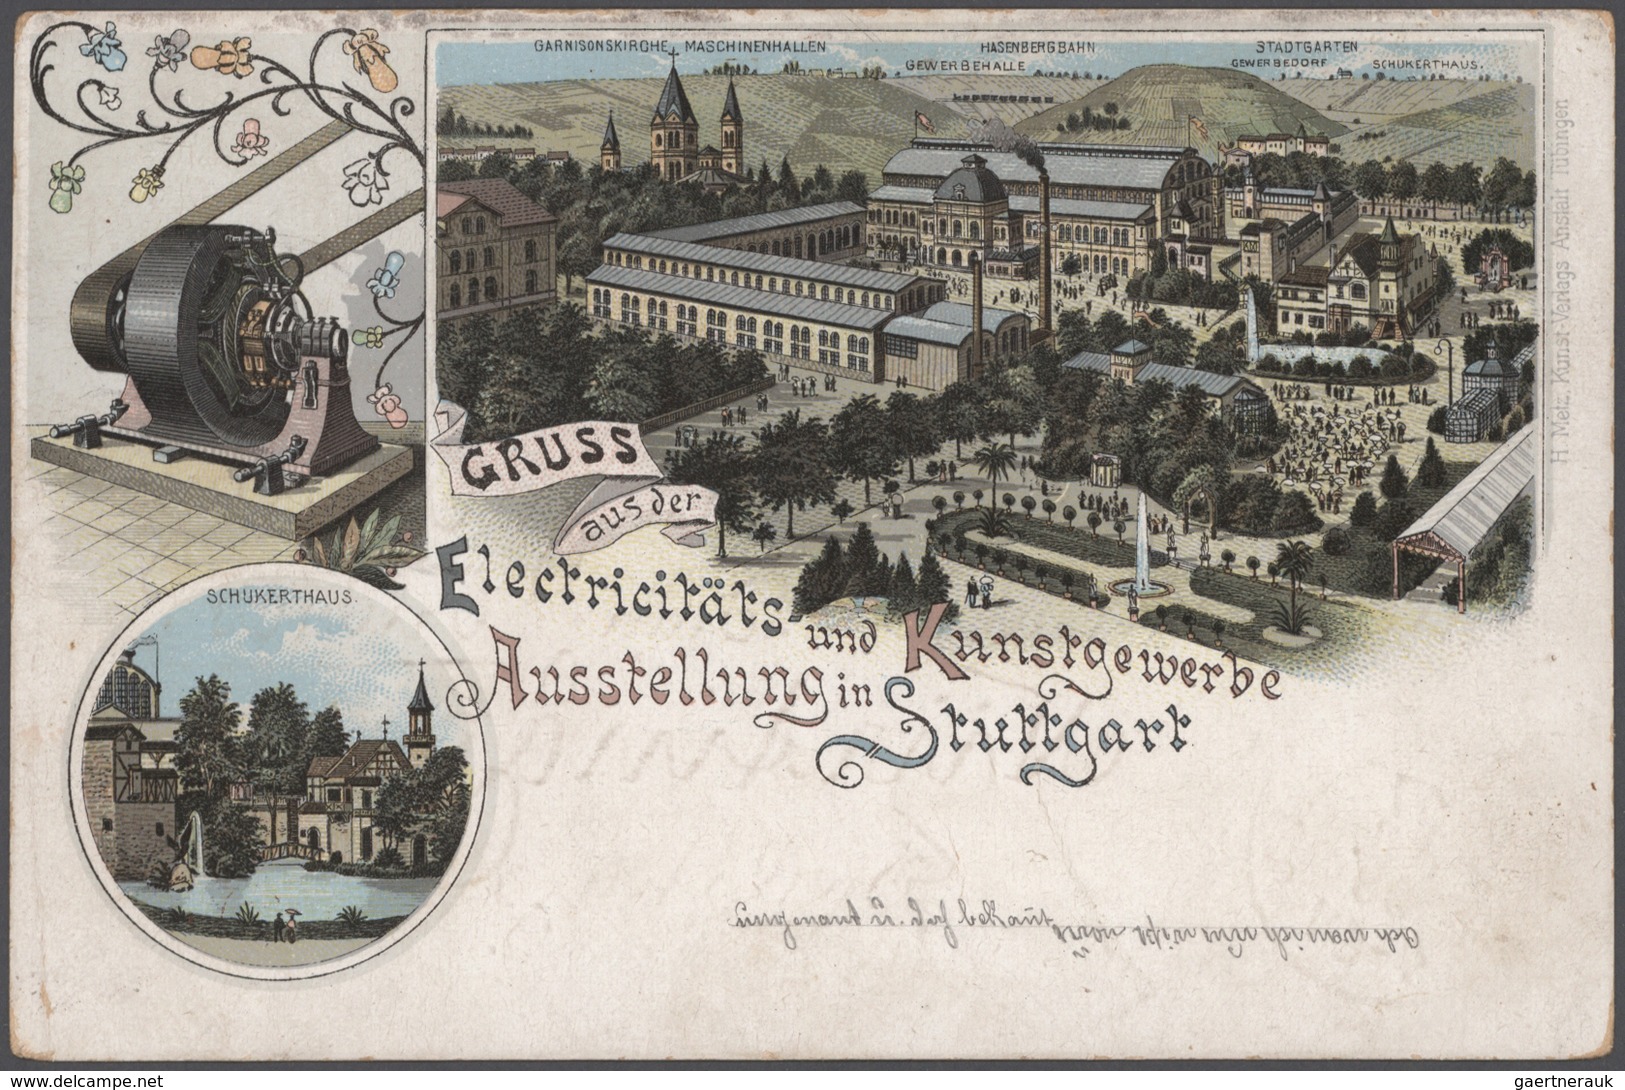 GARNISONSKIRCHE MASCHINENHALLEN HASENBERGBAHN STADTGARTEN
GEWERBEHALLE GEWERBEDORF SCHUKERTHAUS.
GRUSS
aus der
Electricitäts-
und Kunstgewerbe
Ausstellung in
Stuttgart
SCHUKERTHAUS.
H. Metz, Kunst-Verlags Anstalt Tübingen
ungenant u. doch bekant
©delcampe.net
gaertnerauk